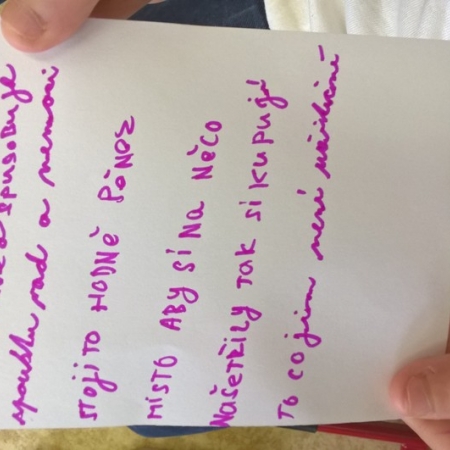 způsobuje
spoustu vad a nemoci
STOJÍ TO HODNĚ
MÍSTO ABY SI NA NĚCO
NAŠETŘILY TAK SI KUPUJÍ
TO CO jim není